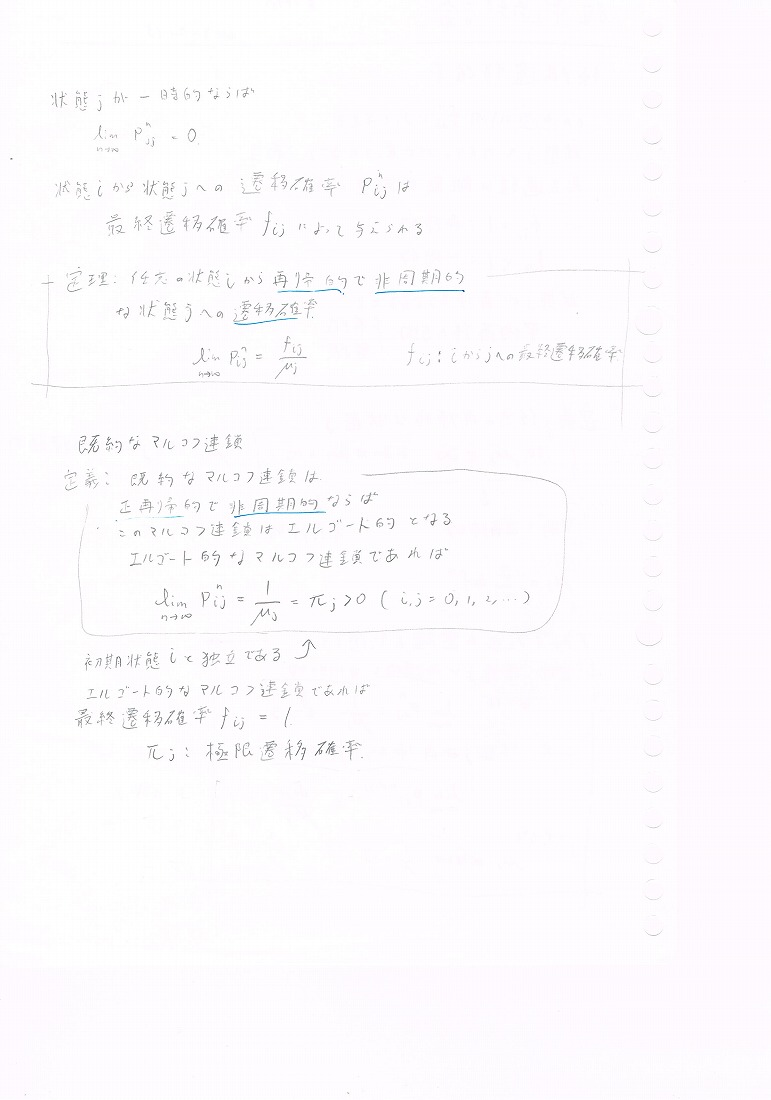 状態jが一時的ならば
lim n→∞ P^n_jj = 0.
状態iから状態jへの遷移確率 P^n_ij は
最終遷移確率 f_ij によって与えられる
定理: 任意の状態iから再帰的で非周期的
な状態jへの遷移確率
lim n→∞ P^n_ij = f_ij / μ_j f_ij: iからjへの最終遷移確率
既約なマルコフ連鎖
定義: 既約なマルコフ連鎖は
正再帰的で非周期的ならば
このマルコフ連鎖はエルゴート的となる
エルゴート的なマルコフ連鎖であれば
lim n→∞ P^n_ij = 1/μ_j = π_j > 0 ( i,j = 0, 1, 2, … )
初期状態iと独立である
エルゴート的なマルコフ連鎖であれば
最終遷移確率 f_ij = 1.
π_j: 極限遷移確率.